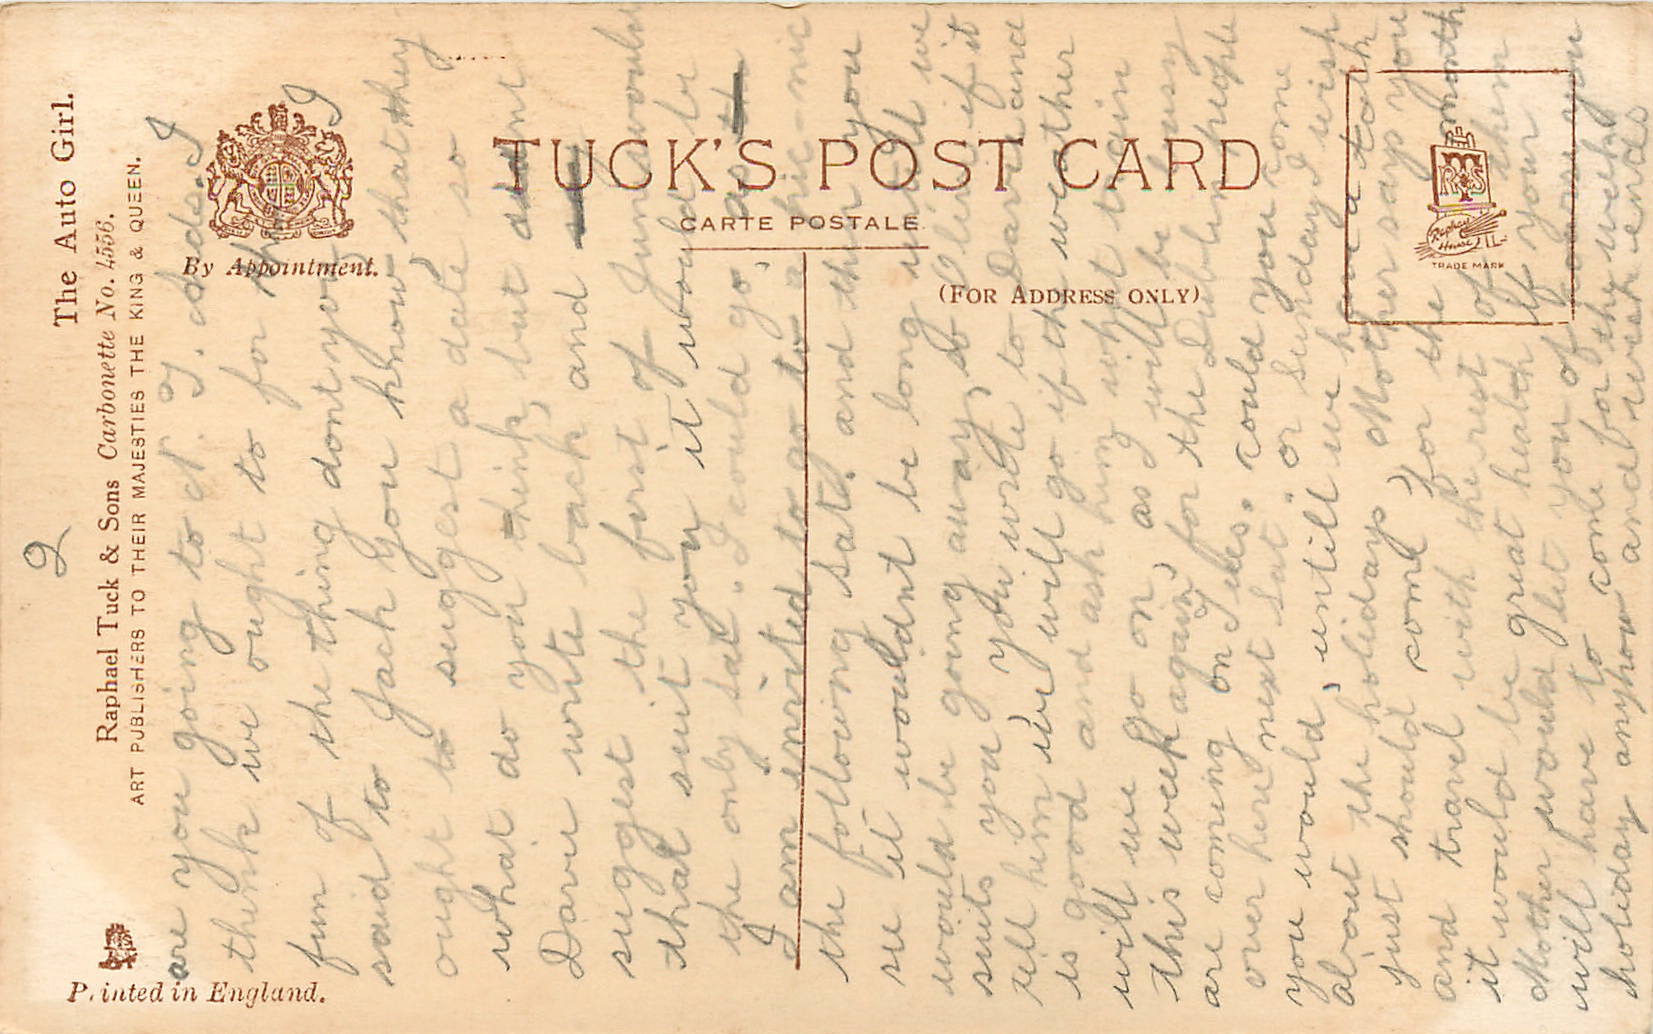 2
The Auto Girl.
Raphael Tuck & Sons Carbonette No. 4556.
ART PUBLISHERS TO THEIR MAJESTIES THE KING & QUEEN.
By Appointment.
Printed in England.
TUCK'S POST CARD
CARTE POSTALE.
(FOR ADDRESS ONLY)
Raphael House
TRADE MARK
are you going to d. J. I
think we ought to for
fun of the thing dont you I
said to Jack you know that they
ought to suggest a date so
what do you think, but
Dave write back, and
suggest the first of June would
that suit you it would be
the only Sat. I could go,
I am invited to go to a pic-nic
the following Sat. and then you
se it wouldnt be long until we
would be going away, so if it
suits you you write to Dave and
tell him we will go if the weather
is good and ask him what train
will we go on, as I will be busy
this week again, for the Dublin people
are coming on Tues. could you come
over here next Sat. or Sunday I wish
you would, until we have a talk
about the holidays, Mother says you
just should come for the month
and travel with the rest of them
it would be great health if your
Mother would let you of cors you
will have to come for the weeks
holiday anyhow and week ends